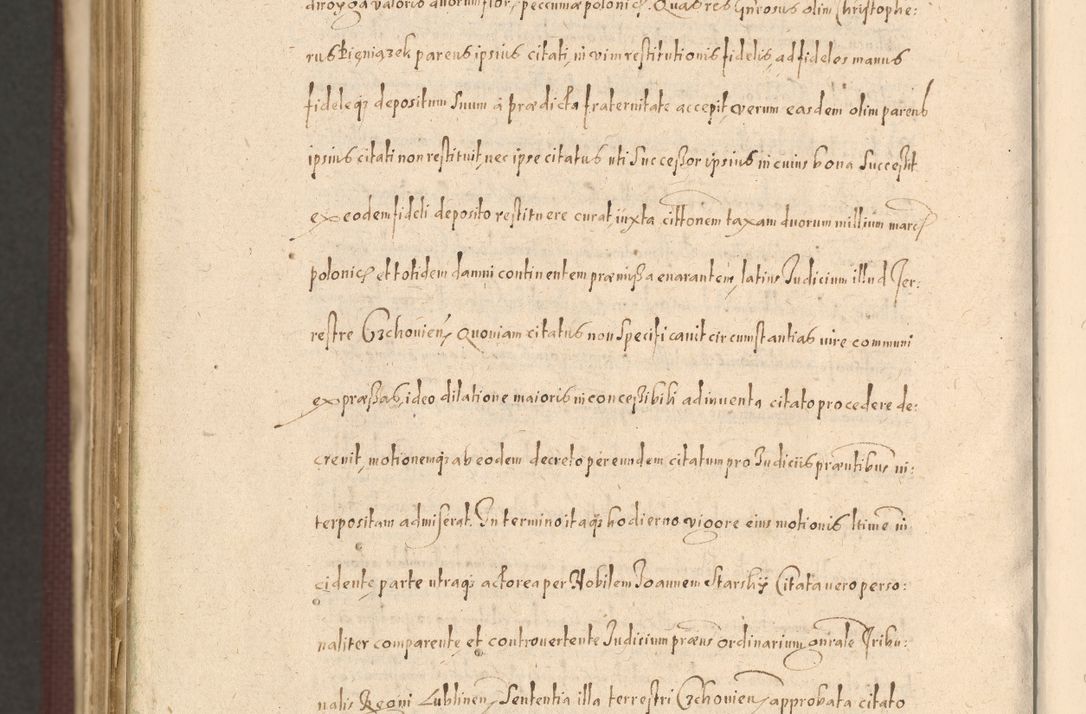 droyga valoris duorum flor, peccuniæ polonic. Quas res Gnrosus olim Christophe:
rus Xięniązek parens ipsius citati, in vim restitutionis fidelis, ad fideles manus
fideleqz depositum suum à prædicta fraternitate accepit, verum easdem olim parens
ipsius citati non restituit, nec ipse citatus uti Successor ipsius in cuius bona Successit
ex eodem fideli deposito restituere curat, iuxta cittonem taxam duorum millium marc
polonic et totidem damni continentem præmissa enarrantem, latius Judicium illud Ter:
restre Czchovien, Quoniam citatus non specificavit circumstantias vire communi
expræssas, ideo dilatione maioris inconcessibili adinventa citato procedere de:
crevit, motionemqz ab eodem decreto per eundem citatum pro Judiciis præntibus in:
terpositam admiserat. In termino itaqz hodierno vigore eius motionis ltime in
cidente, parte utraqz actorea per Nobilem Joannem Starsky Citata vero perso:
naliter comparente, et controvertente Judicium præns ordinarium gnrale Tribu:
nalis Regni Lublinen, Sententia illa terrestri Czchovien approbata citato